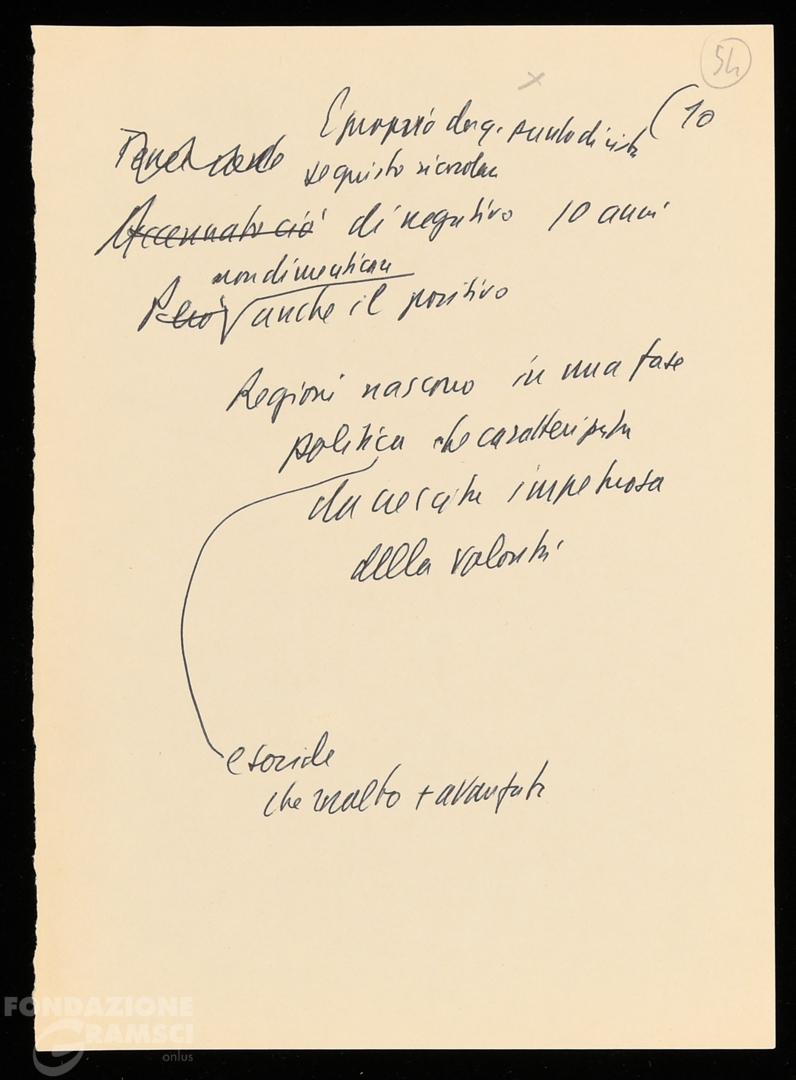 54
(10
E proprio da q. punto di vista
se giusto ricordare
Accennato ciò di negativo 10 anni
non dimenticare
Però anche il positivo
Regioni nascono in una fase
politica che caratterizzata
da crescita impetuosa
della volontà
e sociale
che molto + avanzata
FONDAZIONE
GRAMSCI
onlus